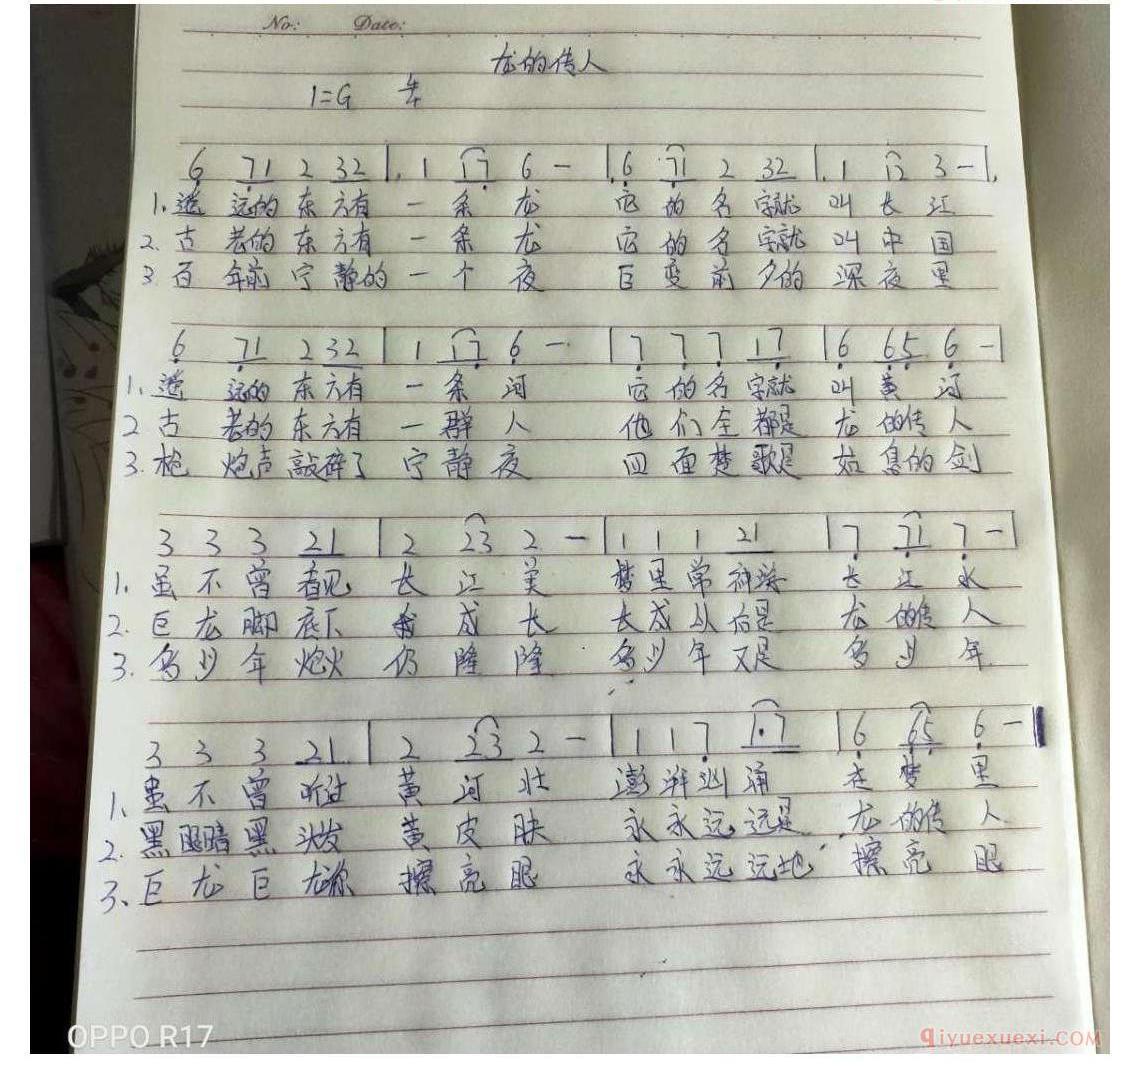 No: Date:
龙的传人
1=G 4/4
6 71 2 32 | 1 17 6 — | 6 71 2 32 | 1 12 3 — |
1. 遥 远的 东 方有 一 条 龙 它 的 名 字就 叫 长 江
2. 古 老的 东 方有 一 条 龙 它 的 名 字就 叫 中 国
3. 百 年前 宁 静的 一 个 夜 巨 变 前 夕的 深 夜 里
6 71 2 32 | 1 17 6 — | 7 7 7 17 | 6 65 6 — |
1. 遥 远的 东 方有 一 条 河 它 的 名 字就 叫 黄 河
2 古 老的 东 方有 一 群 人 他 们 全 都是 龙 的传 人
3. 枪 炮声 敲碎了 宁 静 夜 四 面 楚 歌是 姑 息的 剑
3 3 3 21 | 2 23 2 — | 1 1 1 21 | 7 71 7 — |
1. 虽 不 曾 看见 长 江 美 梦 里 常 神游 长 江 水
2. 巨 龙 脚 底下 我 成 长 长 成 以 后是 龙 的传 人
3. 多 少 年 炮火 仍 隆 隆 多 少 年 又是 多 少 年
3 3 3 21 | 2 23 2 — | 1 1 7 1·7 | 6 65 6 —
1. 虽 不 曾 听过 黄 河 壮 澎 湃 汹 涌 在 梦 里
2. 黑 眼睛 黑 头发 黄 皮 肤 永 永 远 远是 龙 的传 人
3. 巨 龙 巨 龙你 擦 亮 眼 永 永 远 远地 擦 亮 眼
OPPO R17
qiyuexuexi.COM